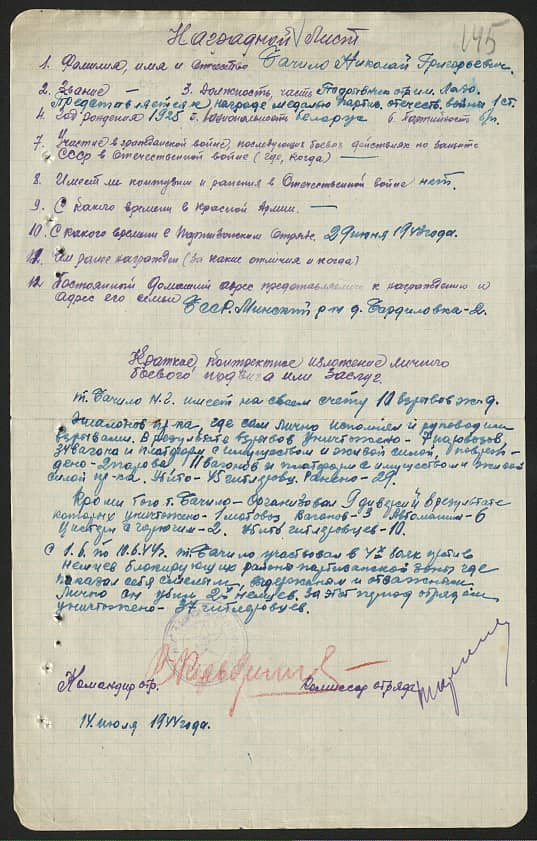 Наградной Лист
145
1. Фамилия, имя и отчество Бачило Николай Григорьевич.
2. Звание — 3. Должность, часть Подрывник отр. им. Лазо.
Представляется к награде медалью партиз. отечеств. войны 1 ст.
4. Год рождения 1925 5. Национальность беларус 6. Партийность б/п.
7. Участие в гражданской войне, последующих боевых действиях по защите
СССР в Отечественной войне (где, когда) —
8. Имеет ли контузии и ранения в Отечественной войне нет.
9. С какого времени в Красной Армии. —
10. С какого времени в Партизанском Отряде. 29 июня 1943 года.
11. Чем ранее награжден (за какие отличия и когда)
12. Постоянный домашний адрес представляемого к награждению и
адрес его семьи БССР, Минский р-н д. Бардиловка-2.
Краткое, конкретное изложение личного
боевого подвига или заслуг.
т. Бачило Н.Г. имеет на своем счету 10 взрывов ж.д.
Эшалонов пр-ка, где сам лично исполнял и руководил
взрывами. В результате взрывов уничтожено- 7 паровозов,
вагона и платформ с имуществом и живой силой,
дено- 2 паровоза 111 вагонов и платформ с имуществом и живой
силой пр-ка. Убито- 45 гитлеровц. Ранено- 29.
Кроми того т. Бачило- Организовал 9 диверсий в результате
которых уничтожено- 1 мотовоз Вагонов-3 Автомашин-6
Цистерн с горючим-2. Убито гитлеровцев-10.
С 1.6. по 10.6.44г. т. Бачило участвовал в 4х боях против
немцев блокирующих районы партизанской зоны где
показал себя смелым, выдержаным и отважным.
Лично он убил 2х немцев. За этот период отрядом
уничтожено- 37 гитлеровцев.
Командир отр. Комиссар отряда
14 июля 1944 года.